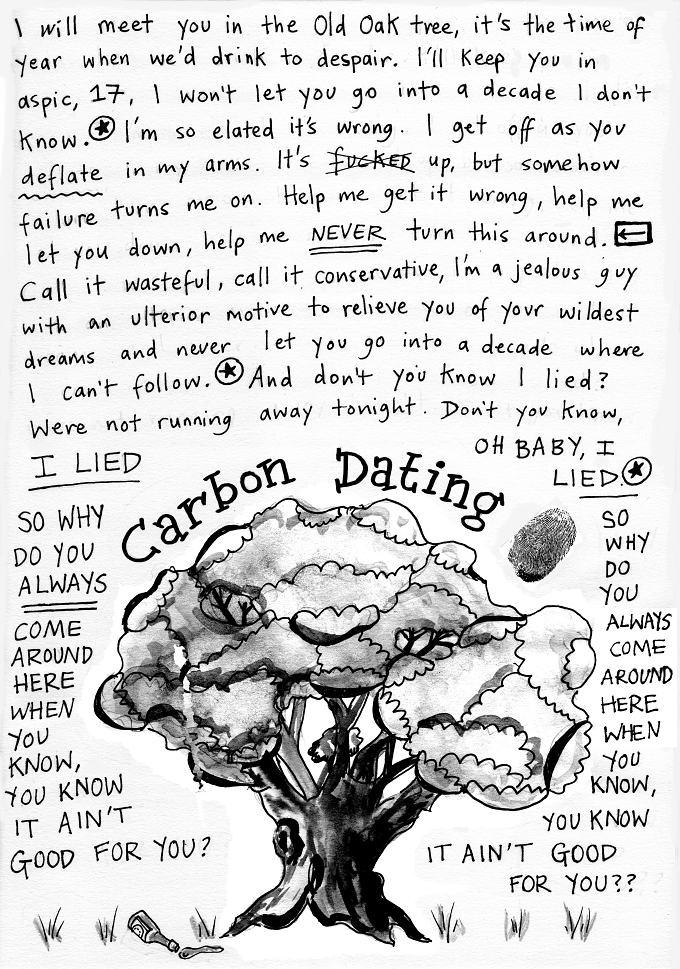 I will meet you in the Old Oak tree, it's the time of
year when we'd drink to despair. I'll keep you in
aspic, 17, I won't let you go into a decade I don't
know. I'm so elated it's wrong. I get off as you
deflate in my arms. It's fucked up, but somehow
failure turns me on. Help me get it wrong, help me
let you down, help me NEVER turn this around.
Call it wasteful, call it conservative, I'm a jealous guy
with an ulterior motive to relieve you of your wildest
dreams and never let you go into a decade where
I can't follow. And don't you know I lied?
Were not running away tonight. Don't you know,
OH BABY, I
I LIED
LIED.
Carbon Dating
SO WHY
DO YOU
ALWAYS
COME
AROUND
HERE
WHEN
YOU
KNOW,
YOU KNOW
IT AIN'T
GOOD FOR YOU?
SO
WHY
DO
YOU
ALWAYS
COME
AROUND
HERE
WHEN
YOU
KNOW,
YOU KNOW
IT AIN'T GOOD
FOR YOU??